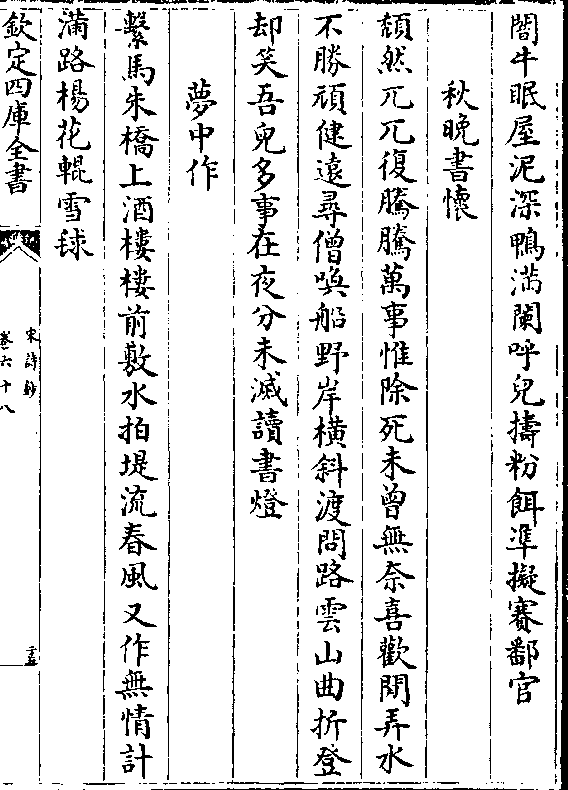 闊牛眠屋泥深鴨滿闌呼兒擣粉餌準擬賽鄱官
秋晚書懷
頹然兀兀復騰騰萬事惟除死未曾無奈喜歡閒弄水
不勝頑健遠尋僧喚船野岸橫斜渡問路雲山曲折登
却笑吾兒多事在夜分未滅讀書燈
夢中作
繫馬朱橋上酒樓樓前敷水拍堤流春風又作無情計
滿路楊花輥雪毬
欽定四庫全書
宋詩鈔
卷六十八